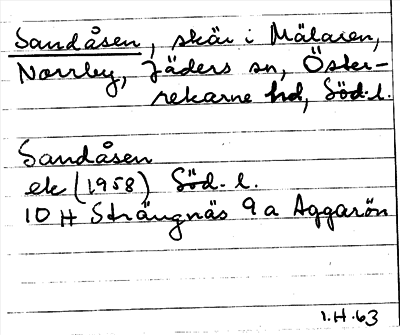 Sandåsen, skär i Mälaren,
Norrby, Jäders sn, Öster-
rekarne hd, Söd. l.
Sandåsen
ek (1958) Söd. l.
10 H Strängnäs 9 a Aggarön
1.H.63